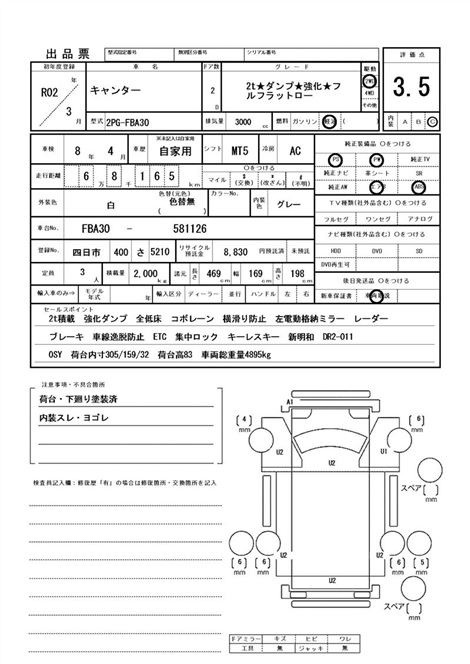 出品票 型式指定番号 類別区分番号 シリアル番号
初年度登録 車名 ドア数 グレード 駆動 評価点
R02 年 3 月 キャンター 2 D 2t★ダンプ★強化★フルフラットロー 2WD 4WD その他 3.5
型式 2PG-FBA30 排気量 3000 cc 燃料 ガソリン 軽油 ( ) 内装 A B C
車検 8 年 4 月 車歴 ※未記入は自家用 自家用 シフト MT5 冷房 AC
純正装備品 〇をつける
走行距離 6 万 8 千 165 km 〇をつける マイル $ (交換) * (改ざん) # (不明)
PS PW 純正TV
純正ナビ 革シート SR
純正AW エアB ABS
外装色 白 色替(元色) 色替無 カラーNo. 内装色 グレー
TV種類(純正以外) 〇をつける
フルセグ ワンセグ アナログ
車台No. FBA30 - 581126
ナビ種類(純正以外) 〇をつける
登録No. 四日市 400 さ 5210 リサイクル預託金 8,830 円預託済 未預託
HDD DVD SD
DVD再生可
定員 3 人 積載量 2,000 kg 諸元 長さ 469 幅 169 高さ 198 cm
後日発送品 〇をつける
輸入車のみ⇒ モデル年式 年 輸入区分 ディーラー 並行 ハンドル 左 右
新車保証書 車両取説
セールスポイント
2t積載 強化ダンプ 全低床 コボレーン 横滑り防止 左電動格納ミラー レーダー
ブレーキ 車線逸脱防止 ETC 集中ロック キーレスキー 新明和 DR2-011
OSY 荷台内寸305/159/32 荷台高83 車両総重量4895kg
注意事項・不具合箇所
荷台・下廻り塗装済
内装スレ・ヨゴレ
検査員記入欄:修復歴「有」の場合は修復箇所・交換箇所を記入
A1
( 4 ) mm
( 6 ) mm
U2 U1
U2
U2 U2
スペア ( ) mm
U2 U2
( 6 ) mm ( 6 ) mm ( 6 ) mm ( 5 ) mm
U2
スペア ( ) mm
Fドアミラー キズ ヒビ ワレ
工具 無 ジャッキ 無